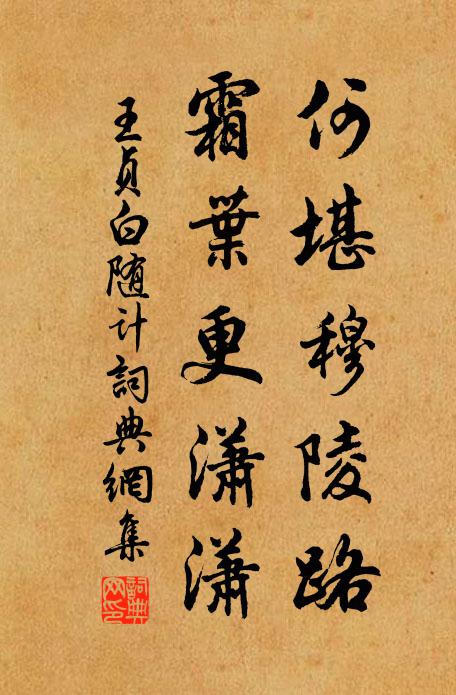 何堪穆陵路
霜葉更瀟瀟
王貞白随计詞典網集
詞典網印